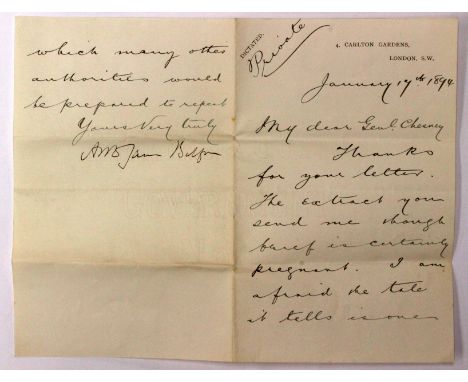 DICTATED.
Private
4, CARLTON GARDENS,
LONDON. S.W.
January 17th 1894
My dear Genl. Chesney
Thanks
for your letter.
The extract you
send me though
breif is certainly
pregnant. I am
afraid the tale
it tells is one
which many other
authorities would
be prepared to repeat
Yours very truly
James Balfour